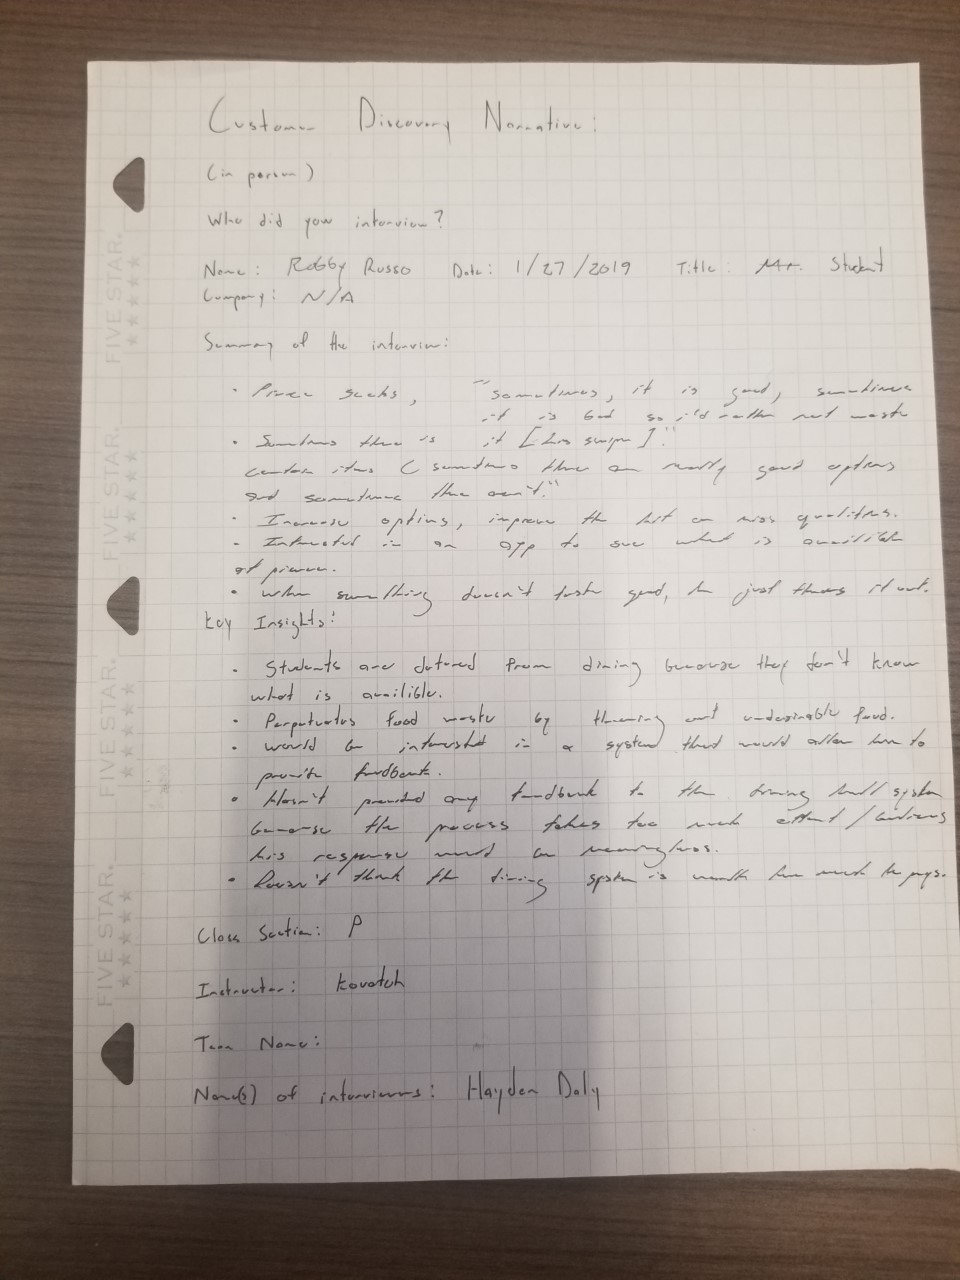 Customer Discovery Narrative:
(in person)
Who did you interview?
Name: Robby Russo Date: 1/27/2019 Title: Mr. Student
Company: N/A
Summary of the interview:
• Pierce sucks, "sometimes, it is good, sometimes
it is bad so i'd rather not waste
• Sometimes there is it [his swipe]."
certain items (sometimes there are really good options
and sometimes there aren't."
• Increase options, improve the hit or miss qualities.
• Interested in an app to see what is availible
at pierce.
• When something doesn't taste good, he just throws it out.
Key Insights:
• Students are detered from dining because they don't know
what is availible.
• Perpetuates food waste by throwing out undesirable food.
• Would be interested in a system that would allow him to
provide feedback.
• Hasn't provided any feedback to the dining hall system
because the process takes too much effort /
his response would be meaningless.
• Doesn't think the dining system is worth how much he pays.
Class Section: P
Instructor: Kovatch
Team Name:
Name(s) of interviewers: Hayden Daly
FIVE STAR.
FIVE STAR.
FIVE STAR.
FIVE STAR.